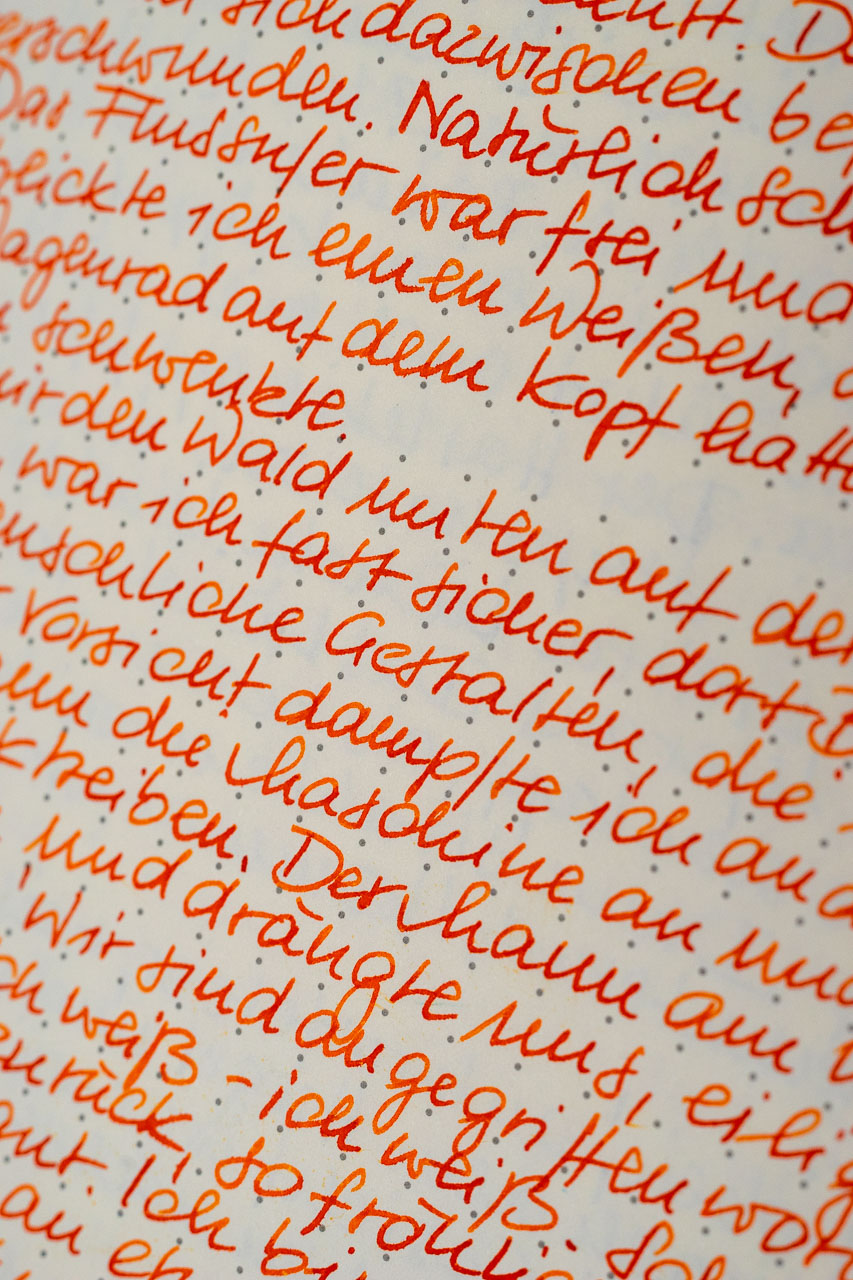 sich dazwischen be
erschwunden. Natürlich sch
Das Flussufer war frei und
blickte ich einen Weißen,
Wagenrad auf dem Kopf hatte
schwenkte.
wir den Wald unten auf der
war ich fast sicher, dort
enschliche Gestalten, die
Vorsicht dampfte ich an
nn die Maschine an und
treiben. Der Mann am
und drängte uns, eilig
"Wir sind angegriffen wor
ch weiß - ich weiß. Sch
zurück, so fröhlic
aut. Ich bi
an et